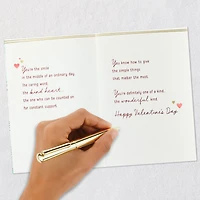 You're the smile
in the middle of an ordinary day,
the caring word,
the kind heart,
the one who can be counted on
for constant support.
You know how to give
the simple things
that matter the most.
You're definitely one of a kind,
the wonderful kind.
Happy Valentine's Day